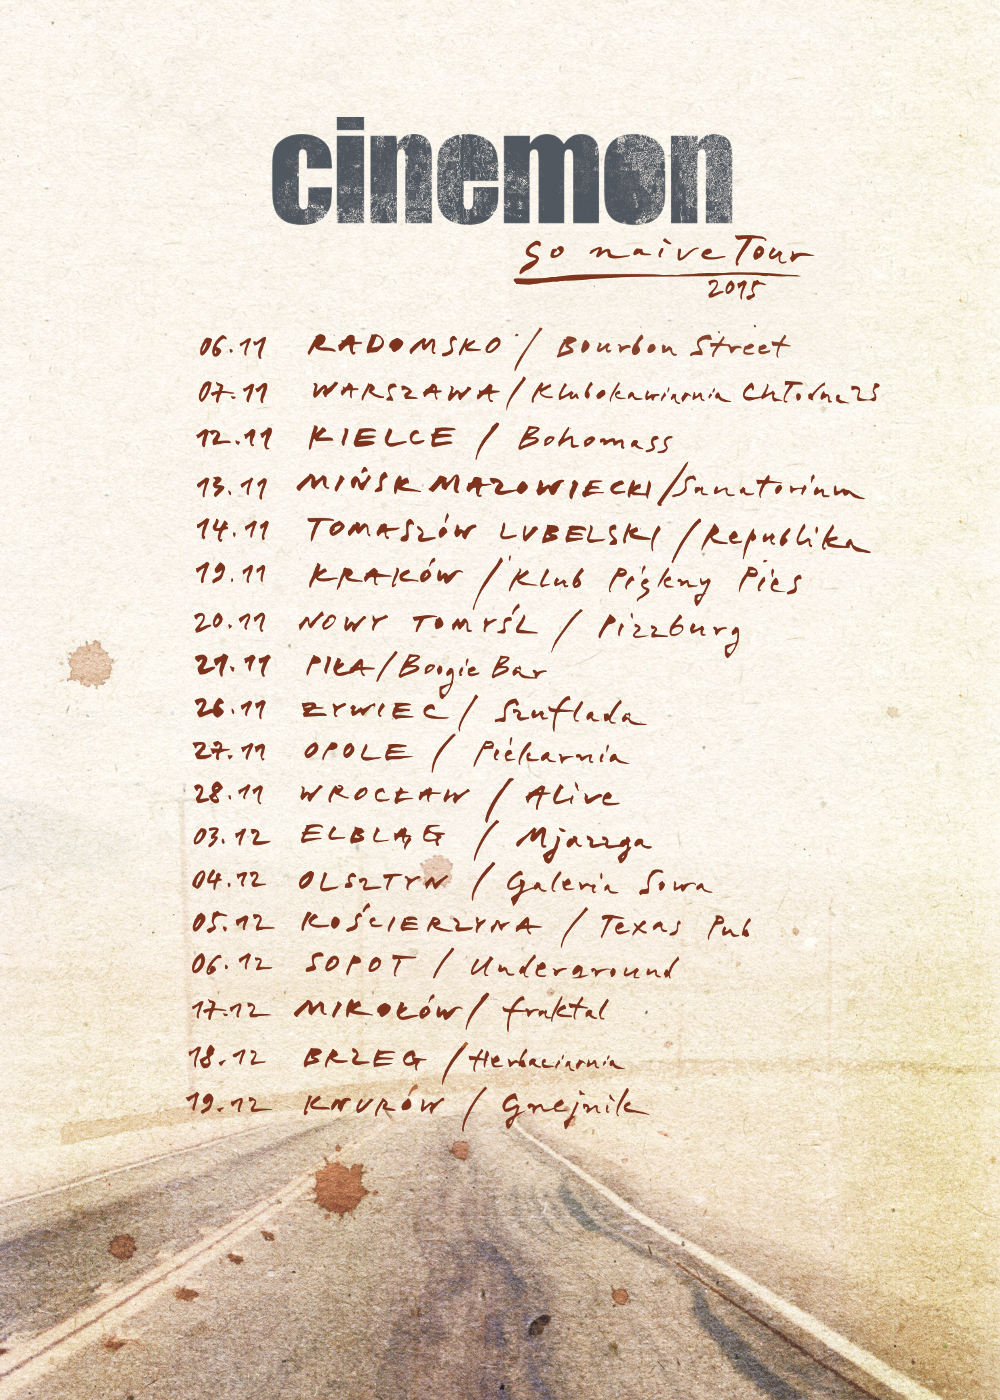 cinemon
go naive Tour
2015
06.11 RADOMSKO / Bourbon Street
07.11 WARSZAWA / Klubokawiarnia Chłodna 25
12.11 KIELCE / Bohomass
13.11 MIŃSK MAZOWIECKI / Sanatorium
14.11 TOMASZÓW LUBELSKI / Republika
19.11 KRAKÓW / Klub Piękny Pies
20.11 NOWY TOMYŚL / Pizzburg
21.11 PIŁA / Boogie Bar
26.11 ŻYWIEC / Szuflada
27.11 OPOLE / Piekarnia
28.11 WROCŁAW / Alive
03.12 ELBLĄG / Mjazzga
04.12 OLSZTYN / Galeria Sowa
05.12 KOŚCIERZYNA / Texas Pub
06.12 SOPOT / Underground
17.12 MIKOŁÓW / fraktal
18.12 BRZEG / Herbaciarnia
19.12 KNURÓW / Gnejnik